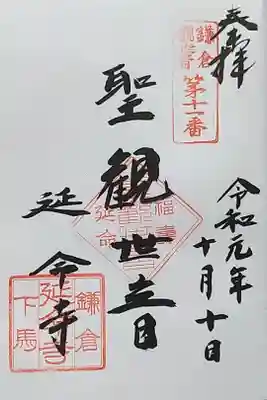 奉拝
鎌倉
第十一番
聖観世音
延命寺
令和元年
十月十日
延命
鎌倉
延命寺
下馬